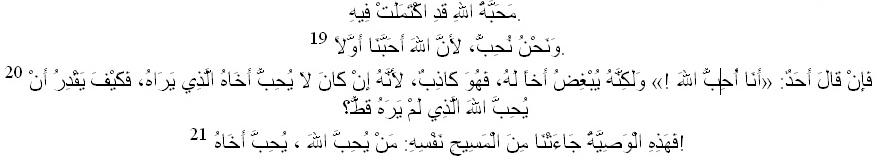 مَحَبَّةُ اللهِ قَدِ اكْتَمَلَتْ فِيهِ.
19 وَنَحْنُ نُحِبُّ، لأَنَّ اللهَ أَحَبَّنَا أَوَّلاً.
20 فَإِنْ قَالَ أَحَدٌ: «أَنَا أُحِبُّ اللهَ !» وَلَكِنَّهُ يُبْغِضُ أَخاً لَهُ، فَهُوَ كَاذِبٌ، لأَنَّهُ إِنْ كَانَ لا يُحِبُّ أَخَاهُ الَّذِي يَرَاهُ، فَكَيْفَ يَقْدِرُ أَنْ
يُحِبَّ اللهَ الَّذِي لَمْ يَرَهُ قَطُّ؟
21 فَهَذِهِ الْوَصِيَّةُ جَاءَتْنَا مِنَ الْمَسِيحِ نَفْسِهِ: مَنْ يُحِبَّ اللهَ ، يُحِبَّ أَخَاهُ!